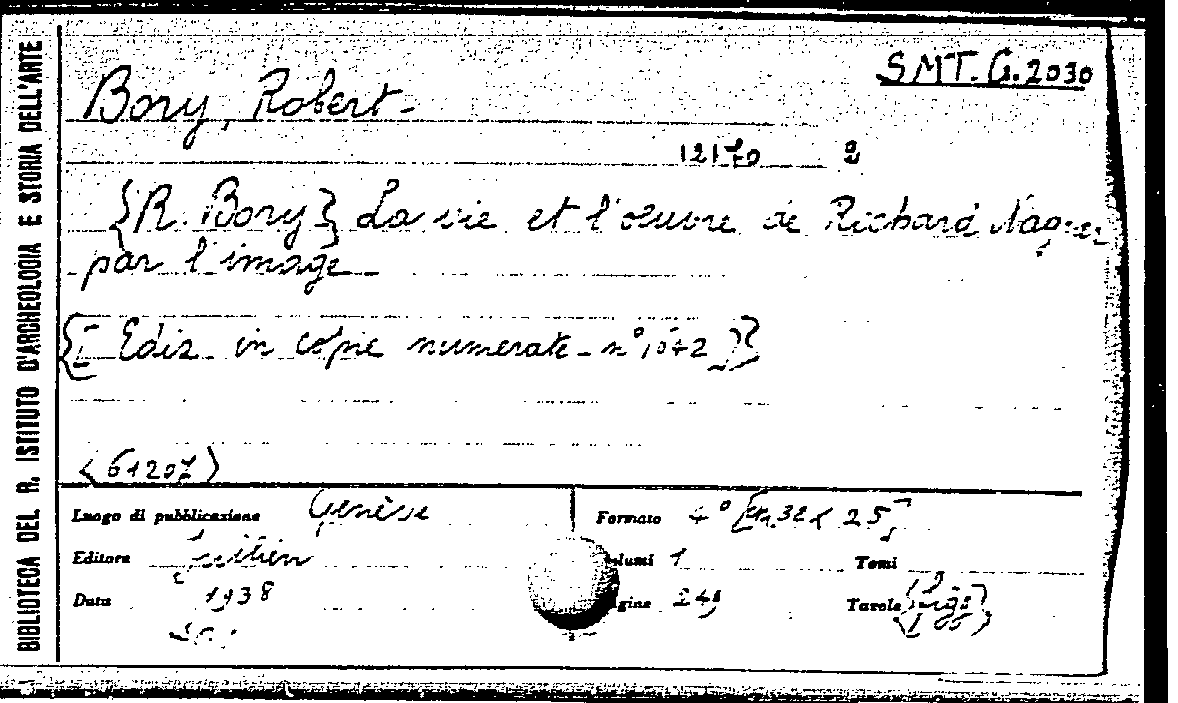 BIBLIOTECA DEL R. ISTITUTO D'ARCHEOLOGIA E STORIA DELL'ARTE
SMT. G. 2030
Bory, Robert-
12170 2
{R. Bory} La vie et l'oeuvre de Richard Wagner
par l'image
{[Ediz. in copie numerate - n° 1042]}
<61207>
Luogo di pubblicazione Genève
Formato 4° [cm. 32 x 25]
Editore
Volumi 1 Tomi
Data 1938
Pagine Tavole {figs}